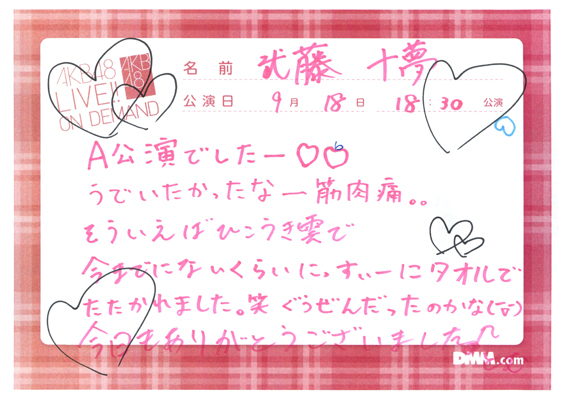 AKB48
LIVE!!
ON DEMAND
AKB
48
名前 武藤 十夢
公演日 9月 18日 18:30 公演
A公演でしたー♡♡
うでいたかったなー筋肉痛。。
そういえばひこうき雲で
今までにないくらいにっすぃーにタオルで
たたかれました。笑 ぐうぜんだったのかな
今日もありがとうございました
DMM.com